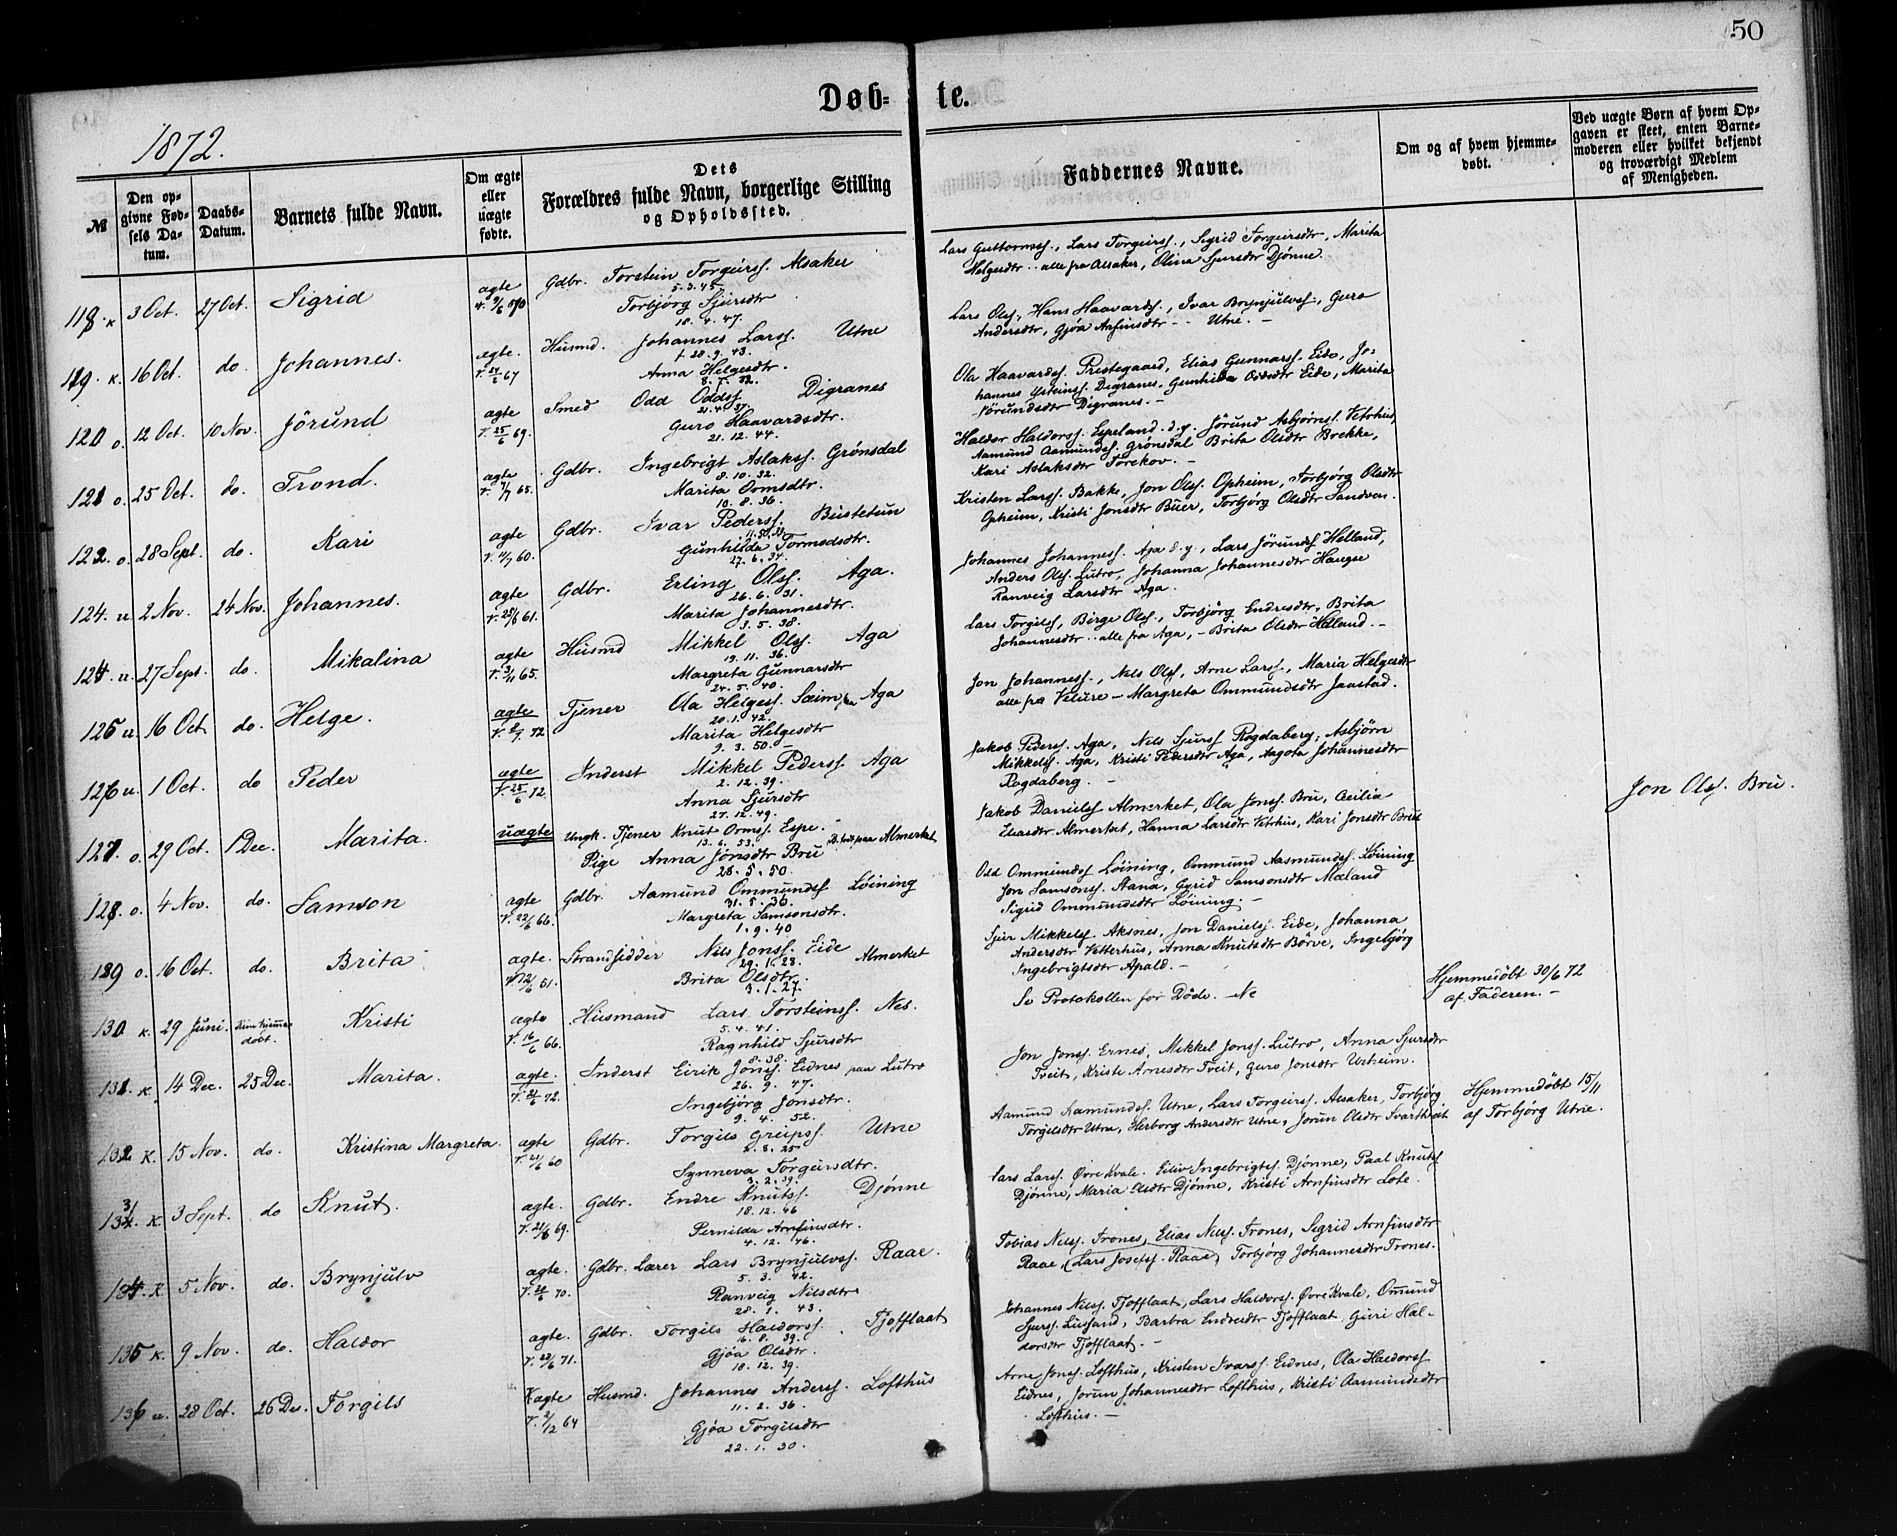 50
Døb= te.
1872.
№
Den op-
givne Fød-
sels Da-
tum.
Daabs-
Datum.
Barnets fulde Navn.
Om ægte
eller
uægte
fødte.
Dets
Forældres fulde Navn, borgerlige Stilling
og Opholdssted.
Faddernes Navne.
Om og af hvem hjemme-
døbt.
Ved uægte Børn af hvem Op-
gaven er skeet, enten Barne-
moderen eller hvilket bekjendt
og troværdigt Medlem
af Menigheden.
118. K 3 Oct. 27 Oct. Sigrid ægte Gdbr. Torstein Torgeirss. Alsaker
5.3.45
Torbjørg Sjursdtr
18.4.47.
Lars Guttormss., Lars Torgeirss., Sigrid Torgeirsdtr, Marita
Helgesdtr .. alle fra Alsaker, Olina Sjursdtr Djønne.
119. K. 16 Oct. do. Johannes. ægte. Husmd. Johannes Larss. Utne
f. 28.9.43.
V. 24/6 67 Anna Helgesdtr.
Lars Olss., Hans Haavardss., Ivar Brynjulvss., Guro
Andersdtr, Gjøa Arfinsdtr - - Utne. -
120 o. 12 Oct. 10 Nov. Jörund ægte Smed Odd Oddss. Digranes
21.4.37.
V. 25/6 69. Guro Haavardsdtr.
21.12.44.
Ola Haavardss. Prestegaard, Elias Gunnarss. Eide, Jo-
hannes Osteinss. Digranes, Gunhilda Oddsdtr Eide, Marita
Jörundsdtr Digranes. -
121 o. 25 Oct. do. Trond. ægte Gdbr. Ingebrigt Aslakss. Grønsdal
8.10.32.
Marita Ormsdtr.
10.8.36.
Haldor Haldorss. Espeland d.y. Jörund Asbjørnss. Vetrhus,
Aamund Aamundss. Grønsdal Brita Olsdtr Brekke,
Kari Aslaksdtr Torekov. -
122. o. 28 Sept. do. Kari ægte Gdbr. Ivar Pederss. Bustetun
Gunhilda Tormodsdtr.
27.6.34.
Kristen Larss. Bakke, Jon Olss. Opheim, Torbjørg Olsdtr
Opheim, Kristi Jonsdtr Buer, Torbjørg Olsdtr Sandven.
124. u. 2 Nov. 24 Nov. Johannes. ægte Gdbr. Erling Olss. Aga.
26.6.31.
Marita Johannesdtr.
3.5.38.
Johannes Johanness. Aga d.y., Lars Jörundss. Helland,
Anders Olss. Lutro, Johanna Johannesdtr Haugse
Ranveig Larsdtr Aga.
124. u. 27 Sept. do. Mikalina ægte Husmd Mikkel Olss. Aga
19.11.36.
V. 3/11 65. Margreta Gunnarsdtr
24.5.40.
Lars Torgilss., Birge Olss., Torbjörg Endresdtr, Brita
Johannesdtr .. alle fra Aga, - Brita Olsdtr Helland. -
125 u. 16 Oct. do. Helge. ægte Tjener Ola Helgess. Sæim, Aga
20.1.42.
Marita Helgesdtr
9.3.50. -
Jon Johanness., Nils Olss., Arne Larss., Maria Helgesdtr
alle fra Velure - Margreta Ommundsdtr Jaastad.
126 u. 1 Oct. do Peder ægte Inderst Mikkel Pederss. Aga
2.12.39.
V. 25/6 72. Anna Sjursdtr
27.12.49.
Jakob Pederss. Aga, Nils Sjurss Rogdaberg; Asbjörn
Mikkelss. Aga, Kristi Pedersdtr Aga, Aagota Johannesdtr
Rogdaberg. -
127. o. 29 Oct. 1 Dec. Marita. uægte Ungk. Tjener Knut Ormss. Espe. -
13.6.53.
Pige Anna Jonsdtr Bru Almerket
28.5.50.
Jakob Danielss Almerket, Ola Jonss. Bru, Cecilia
Eliasdtr Almerket, Hanna Larsdtr Vetrhus, Kari Jonsdtr Bru
Jon Olss. Bru.
128. o. 4 Nov. do. Samson ægte Gdbr. Aamund Ommundss Löining
31.5.36.
V. 22/6 66. Margreta Samsonsdtr.
1.9.40
Odd Ommundss Löining, Ommund Aasmundss. Löining
Jon Samsonss. Stana, Gyrid Samsonsdtr Mæland
Sigrid Ommundsdtr Löining. -
129 o. 16 Oct. do. Brita ægte. Strandsidder Nils Jonss. Eide Almerket
29.1.23.
Brita Olsdtr.
3.1.27.
Sjur Mikkelss. Aksnes, Jon Danielss. Eide, Johanna
Andersdtr Vetterhus, Anna Knutsdtr Börve, Ingebjörg
Ingebrigtsdtr Apald. -
130 K. 29 Juni. Kun hjemme-
døbt. Kristi ægte Husmand Lars Torsteinss. Nes.
5.4.41.
V. 16/6 66. Ragnhild Sjursdtr
9.8.38.
Se Protokollen for Døde. - Ne
Hjemmedøbt 30/6 72
af Faderen. -
131. K. 14 Dec. 25 Dec. Marita. ægte. Inderst Eirik Jonss. Eidnes paa Lutro
26.9.47.
Ingebjörg Jonsdtr.
9.4.52.
Jon Jonss. Ernes, Mikkel Jonss. Lutro, Anna Sjursdtr
Tveit, Kristi Arnesdtr Tveit, Guro Jonsdtr Urheim.
132 K. 15 Nov. do. Kristina Margreta. ægte Gdbr. Torgils Greipss. Utne
2.8.25
V. 21/6 60 Synneva Torgeirsdtr.
3.2.39.
Aamund Aamundss. Utne, Lars Torgeirss. Alsaker, Torbjörg
Torgilsdtr Utne, Herborg Andersdtr Utne, Jorun Olsdtr Svartveit
Hjemmedøbt 15/11
af Torbjörg Utne.
133. K. 3 Sept. do Knut. ægte. Gdbr. Endre Knutss. Djönne
18.12.46
V. 21/6 69. Pernilda Arnfinsdtr.
4.12.46.
Lars Larss. Øvre Kvale. Eiliv Ingebrigtss. Djönne, Paal Knutss
Djönne, Maria Olsdtr Djönne, Kristi Arnfinsdtr Lote.
134. K. 5 Nov. do. Brynjulv ægte. Gdbr. Lærer Lars Brynjulvss. Raae.
5.3.42.
Ranveig Nilsdtr
28.1.43.
Tobias Nilss. Trones, Elias Nilss. Trones, Sigrid Arnfinsdtr
Raae, (Lars Josefss. Raae), Torbjörg Johannesdtr Trones.
135 K. 9 Nov. do. Haldor ægte. Gdbr. Torgils Haldorss. Tjofflaat
16.8.39.
Gjøa Olsdtr.
10.12.39.
Johannes Nilss. Tjofflaat, Lars Haldorss. Øvre Kvale, Omund
Sjurss. Liusand, Barbra Endresdtr Tjofflaat Guri Hal-
dorsdtr Tjofflaat. -
136 u. 28 Oct. 26 Dec. Torgils ægte Husmd. Johannes Anderss. Lofthus
11.2.36.
V. 2/2 64 Gjøa Torgilsdtr
22.1.30.
Arne Jonss. Lofthus, Kristen Ivarss. Eidnes, Ola Haldorss
Eidnes, Jorun Johannesdtr Lofthus, Kristi Aamundsdtr
Lofthus. -